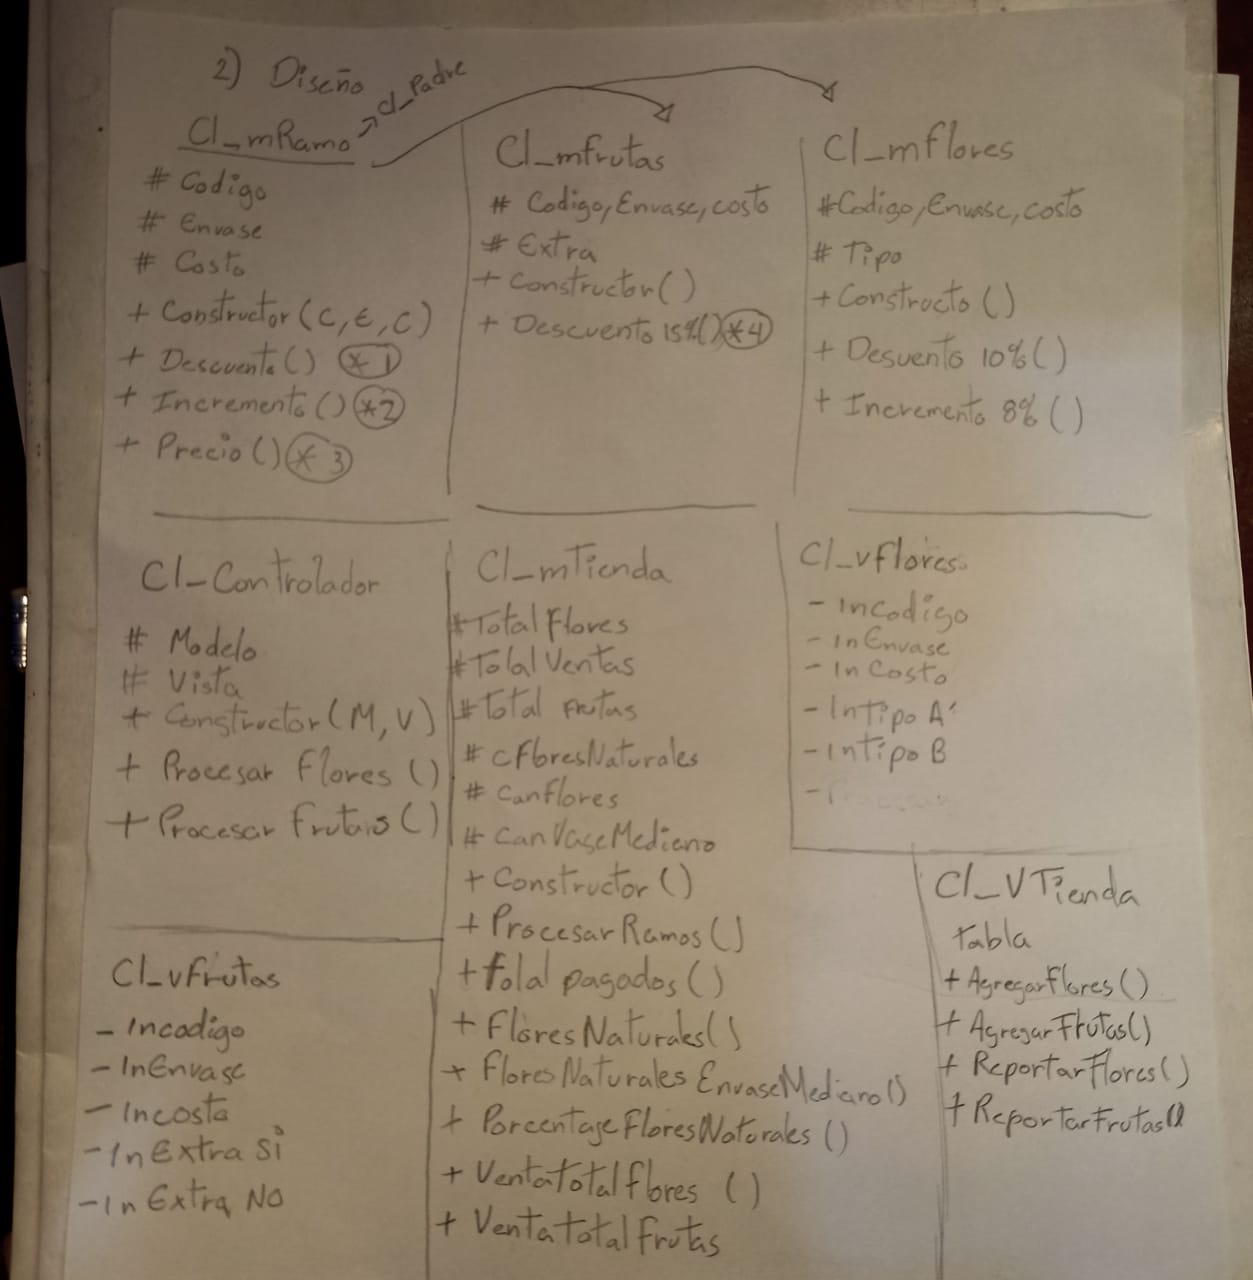 2) Diseño
Cl_mRamo → Cl_Padre
# Codigo
# Envase
# Costo
+ Constructor (C, E, C)
+ Descuento () *1
+ Incremento () *2
+ Precio () *3
Cl_mfrutas
# Codigo, Envase, costo
# Extra
+ Constructor ()
+ Descuento 15% () *4
Cl_mflores
# Codigo, Envase, costo
# Tipo
+ Constructo ()
+ Desuento 10% ()
+ Incremento 8% ()
Cl_Controlador
# Modelo
# Vista
+ Constructor (M, V)
+ Procesar Flores ()
+ Procesar
Cl_mTienda
# Total Flores
# Total Ventas
# Total Frutas
# cFloresNaturales
# CanFlores
# CanVaseMediano
+ Constructor ()
+ Procesar Ramos ()
+ Total pagados ()
+ Flores Naturales ()
+ Flores Naturales EnvaseMediano ()
+ Porcentage Flores Naturales ()
+ Venta total flores ()
+ Venta total frutas
Cl_vflores
- InCodigo
- InEnvase
- InCosto
- Intipo A
- Intipo B
Cl_vfrutas
- Incodigo
- InEnvase
- Incosto
- In Extra Si
- In Extra NO
Cl_VTienda
tabla
+ AgregarFlores ()
+ AgregarFrutas ()
+ ReportarFlores ()
+ ReportarFrutas ()